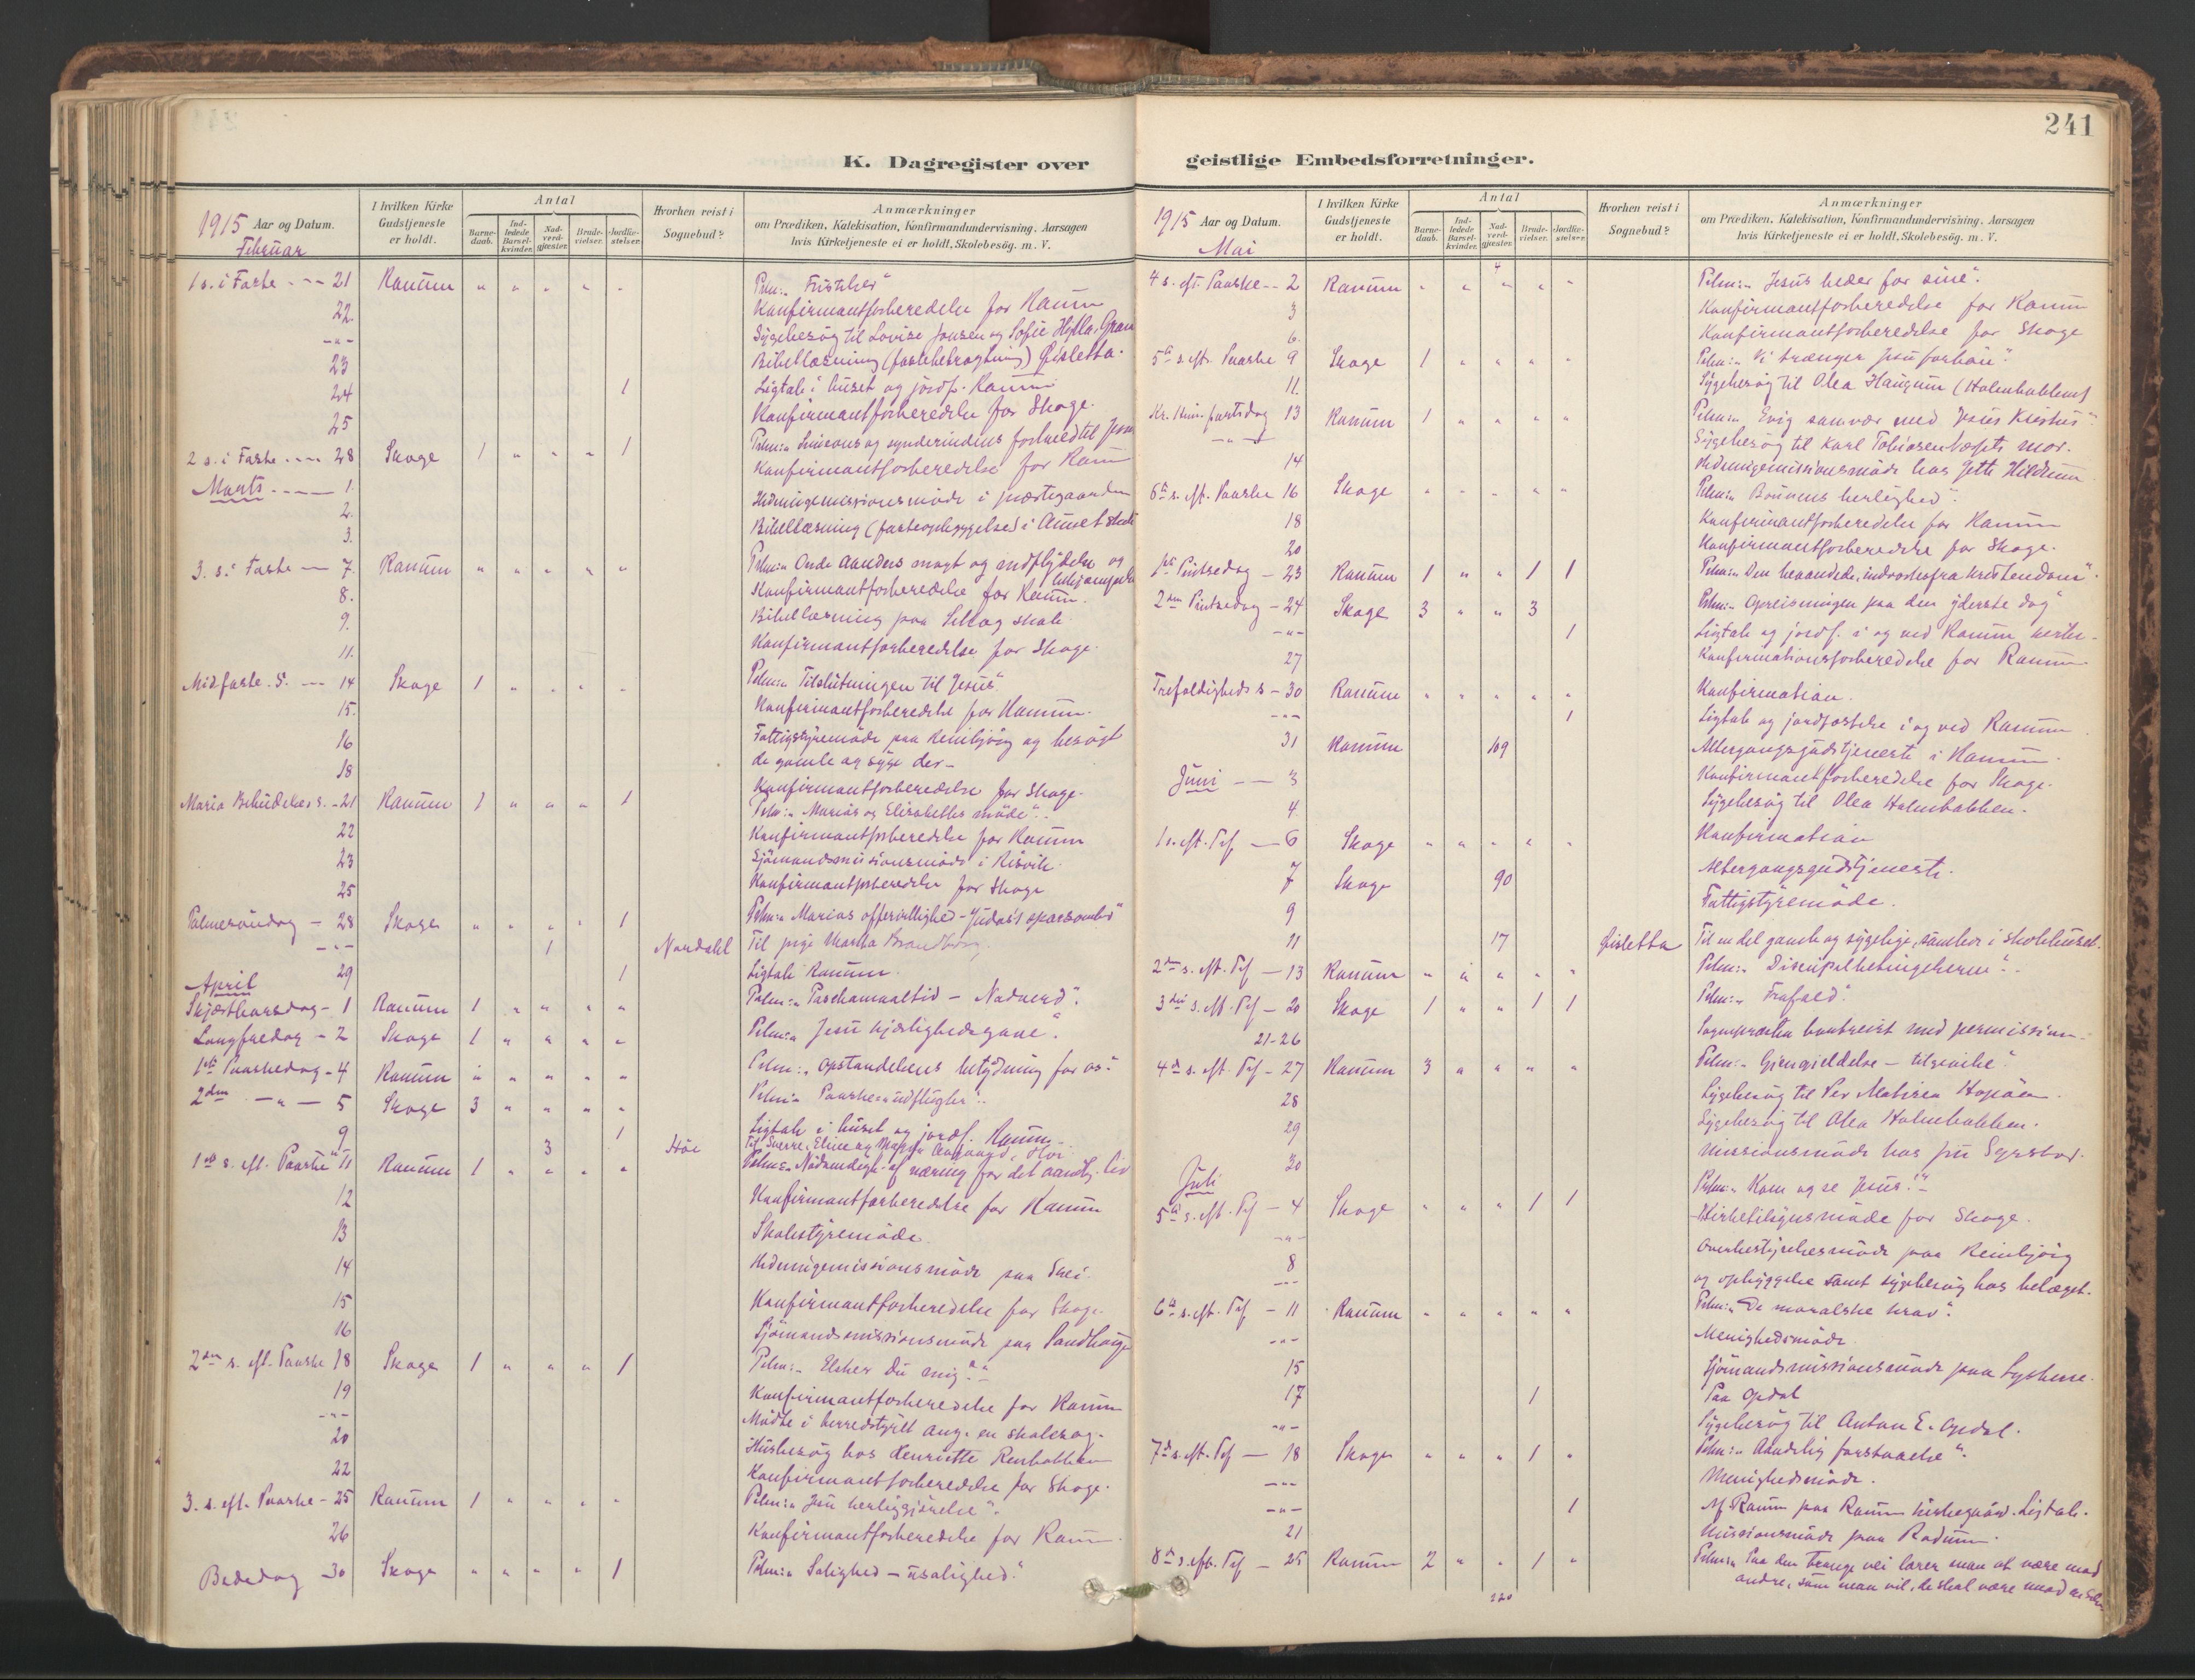 241
K. Dagregister over
geistlige Embedsforretninger.
1915 Aar og Datum.
Februar
I hvilken Kirke Gudstjeneste er holdt.
Antal
Barne-daab.
Ind-ledede Barsel-kvinder.
Nad-verd-gjæster.
Brude-vielser.
Jordfæ-stelser.
Hvorhen reist i Sognebud?
Anmærkninger
om Prædiken, Katekisation, Konfirmandundervisning, Aarsagen
hvis Kirketjeneste ei er holdt, Skolebesög, m. V.
1 s. i Faste - - - 21 Ranum " " " " " Præn: „Fristelser"
22. Konfirmantforberedelse for Ranum
-"- Sygebesøg til Lovise Jonsen og Sofie Hylla, Gran
23 Bibellæsning (fastebetragtning) Gisletta.
24 1 Ligtale i huset og jordf. Ranum
25 Konfirmantforberedelse for Skoge.
2 s. i Faste - - - 28 Skoge 1 " " " 1 Prkn: „Simons og synderindens forhold til Jesu
Marts - - - 1. Konfirmantforberedelse for Ranum
2. Hedningemissionsmøde i præstegaarden
3. Bibellæsning (fasteopbyggelse) i Aunet skole
3. s. i Faste — 7. Ranum " " " " " Prkn: „Onde aanders magt og indflydelse og
8. Konfirmantforberedelse for Ranum.
9. Bibellæsning paa skole.
11. Konfirmantforberedelse for Skoge.
Midfaste. S. - - - 14 Skoge 1 " " " " Prkn: „Tilslutningen til Jesus"
15. Konfirmantforberedelse for Ranum.
16 Fattigstyremøde paa Reinbjørg og besøgt
de gamle og syge der -
18 Konfirmantforberedelse for Skoge.
Maria Bebudelses s. - 21 Ranum 1 " " " 1 Prkn: „Marias og Elisabeths møde".
22 Konfirmantforberedelse for Ranum
23 Sjømandsmissionsmøde i Risvik.
25 Konfirmantforberedelse for Skoge
Palmesøndag - 28 Skoge " " " " 1 Prkn: „Marias offervillighed - Judas's sparsomhed"
- " - 1 Nordahl Til pige Marta Brandberg
29 1 Ligtale Ranum.
April
Skjærthorsdag - 1 Ranum 1 " " " " Prkn: „Paschamaaltid - Nadverd".
Langfredag - 2 Skoge 1 " " " " Prkn: „Jesu kjærlighedsgave".
1ste Paaskedag - 4 Ranum " " " " " Prkn: „Opstandelsens betydning for os".
2den - " - 5 Skoge 3 " " " " Prkn: „Paaskens udflugter".
9 1 Ligtale i huset og jordf. Ranum.
3 Høe Til Sverre, Eline og
1ste s. eft. Paaske 11 Ranum 1 " " " " Prkn: „Nødvendigh. af næring for det aandl. liv
12 Konfirmantforberedelse for Ranum
13 Skolestyremøde.
14 Hedningemissionsmøde paa Skei.
15 Konfirmantforberedelse for Skoge.
16 Sjømandsmissionsmøde paa Sandhaugen
2den s. eft. Paaske 18 Skoge 1 " " " 1 Prkn: „Elsker du mig?"
19 Konfirmantforberedelse for Ranum
- " - Mødte i herredstyret ang. en skolesag.
20 Husbesøg hos Henriette Renbakken
22 Konfirmantforberedelse for Skoge.
3. s. eft. Paaske - 25 Ranum 1 " " " " Prkn: „Jesu herliggjørelse".
26 Konfirmantforberedelse for Ranum.
Bededag - 30 Skoge " " " " 1 Prkn: „Salighed - usalighed."
1915 Aar og Datum.
Mai
I hvilken Kirke Gudstjeneste er holdt.
Antal
Barne-daab.
Ind-ledede Barsel-kvinder.
Nad-verd-gjæster.
Brude-vielser.
Jordfæ-stelser.
Hvorhen reist i Sognebud?
Anmærkninger
om Prædiken, Katekisation, Konfirmandundervisning, Aarsagen
hvis Kirketjeneste ei er holdt, Skolebesög, m. V.
4 s. eft. Paaske - - 2 Ranum " " " " " Prkn: „Jesus beder for sine".
3 Konfirmantforberedelse for Ranum
6. Konfirmantforberedelse for Skoge
5te s. eft. Paaske 9 Skoge 1 " " " " Prkn: „Vi trænger Jesu forbøn".
11. Sygebesøg til Olea Haugum (Holmbakken)
Kr. Himmelfartsdag 13 Ranum 1 " " " " Prkn: „Evig samvær med Jesus Kristus".
- " - Sygebesøg til Karl mor.
14 Hedningemissionsmøde hos Jette Hildrum
6te s. eft. Paaske 16 Skoge " " " " " Prkn: „Bønnens herlighed".
18 Konfirmantforberedelse for Ranum
20 Konfirmantforberedelse for Skoge.
1ste Pintsedag - 23 Ranum 1 " " 1 1 Prkn: „Den beaandede, indvortes fra kristendom".
2den Pintsedag - 24 Skoge 3 " " 3 Prkn: „Opreisningen paa den yderste dag"
- " - 1 Ligtale og jordf. i og ved Ranum kirke.
27 Konfirmationsforberedelse for Ranum.
Trefoldigheds s - 30 Ranum " " " " " Konfirmation.
- " - 1 Ligtale og jordfæstelse i og ved Ranum.
31 Ranum 109 Altergangsgudstjeneste i Ranum.
Juni - - 3 Konfirmantforberedelse for Skoge.
4. Sygebesøg til Olea Holmbakken.
1 s. eft. Tref - 6 Skoge " " " " " Konfirmation
7 Skoge 90 Altergangsgudstjeneste.
9 Fattigstyremøde.
11 17 Gisletta Til en del gamle og sygelige, samlet i skolehuset.
2den s. eft. Tref - 13 Ranum " " " " " Prkn: „Discipelbetingelserne".
3die s. eft. Tref - 20 Skoge 1 " " 1 1 Prkn: „Frafald".
21-26 Sognepræsten bortreist med permission.
4de s. eft. Tref - 27 Ranum 3 " " " " Prkn: „Gjengjeldelse - tilgivelse".
28 Sygebesøg til Per Matisen Hopøen.
29 Sygebesøg til Olea Holmbakken.
30 Missionsmøde hos fru Egrstad.
Juli
5te s. eft. Tref - 4 Skoge " " " 1 1 Prkn: „Kom og se Jesus!"
- " - Kirketilsynsmøde for Skoge.
8 Overbestyrelsesmøde paa Reinbjørg
- " - og opbyggelse samt sygebesøg hos belægget.
6te s. eft. Tref - 11 Ranum " " " " " Prkn: „De moralske krav".
- " - Menighedsmøde.
15 Sjømandsmissionsmøde paa
17 1 Paa Opdal
- " - Sygebesøg til Anton E. Opdal.
7de s. eft. Tref - 18 Skoge " " " 1 " Prkn: „Aandelig forstaaelse".
- " - Menighedsmøde.
- " - 1 Af Ranum paa Ranum kirkegaard. Ligtale.
21 Missionsmøde paa Rodum.
8de s. eft. Tref - 25 Ranum 2 " " 1 " Prkn: „Paa den trange vei lærer man at være mod
andre, som man vil, de skal være mod en selv
220